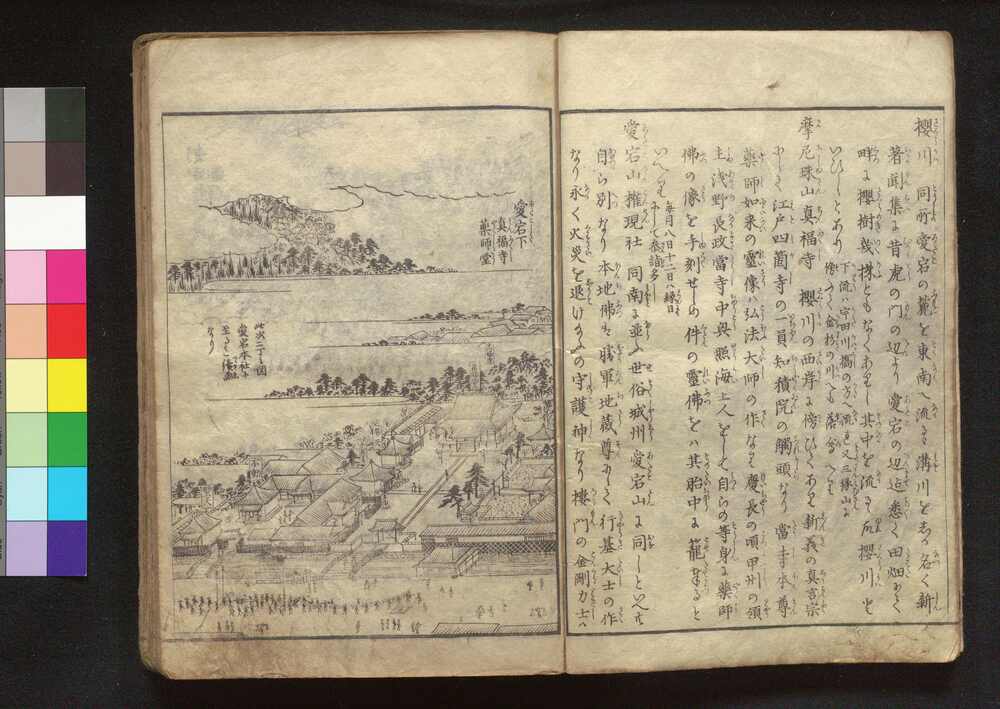 櫻川 同所愛宕の麓を東南へ流るゝ溝川をしか名く新
著聞集に昔虎の門の辺より愛宕の辺迄悉く田畑にて
畔に櫻樹幾株ともなくありし其中を流るゝ故櫻川と
いひしとあり 下流ハ宇田川橋の方へ流れ又三縁山の
後をへて金杉の川へも落合へり
摩尼珠山真福寺 櫻川の西岸に傍ひてあり新義の真言宗
にして江戸四箇寺の一員知積院の觸頭なり 當寺本尊
薬師如来の靈像ハ弘法大師の作なり 慶長の頃甲州の領
主浅野長政當寺中興照海上人をして自らの等身に薬師
佛の像を手刻せしめ件の靈佛をハ其胎中に籠奉ると
いへり 毎月八日十二日ハ縁日
にして参詣多し
愛宕山権現社 同南に並ふ世俗城州愛宕山に同しといへとも
自ら別なり本地佛は勝軍地蔵尊にして行基大士の作
なり永く火災を退け給ふの守護神なり樓門の金剛力士ハ
愛宕下
真福寺
薬師堂
此次二丁の図
愛宕本社に
至るまて続画
なり